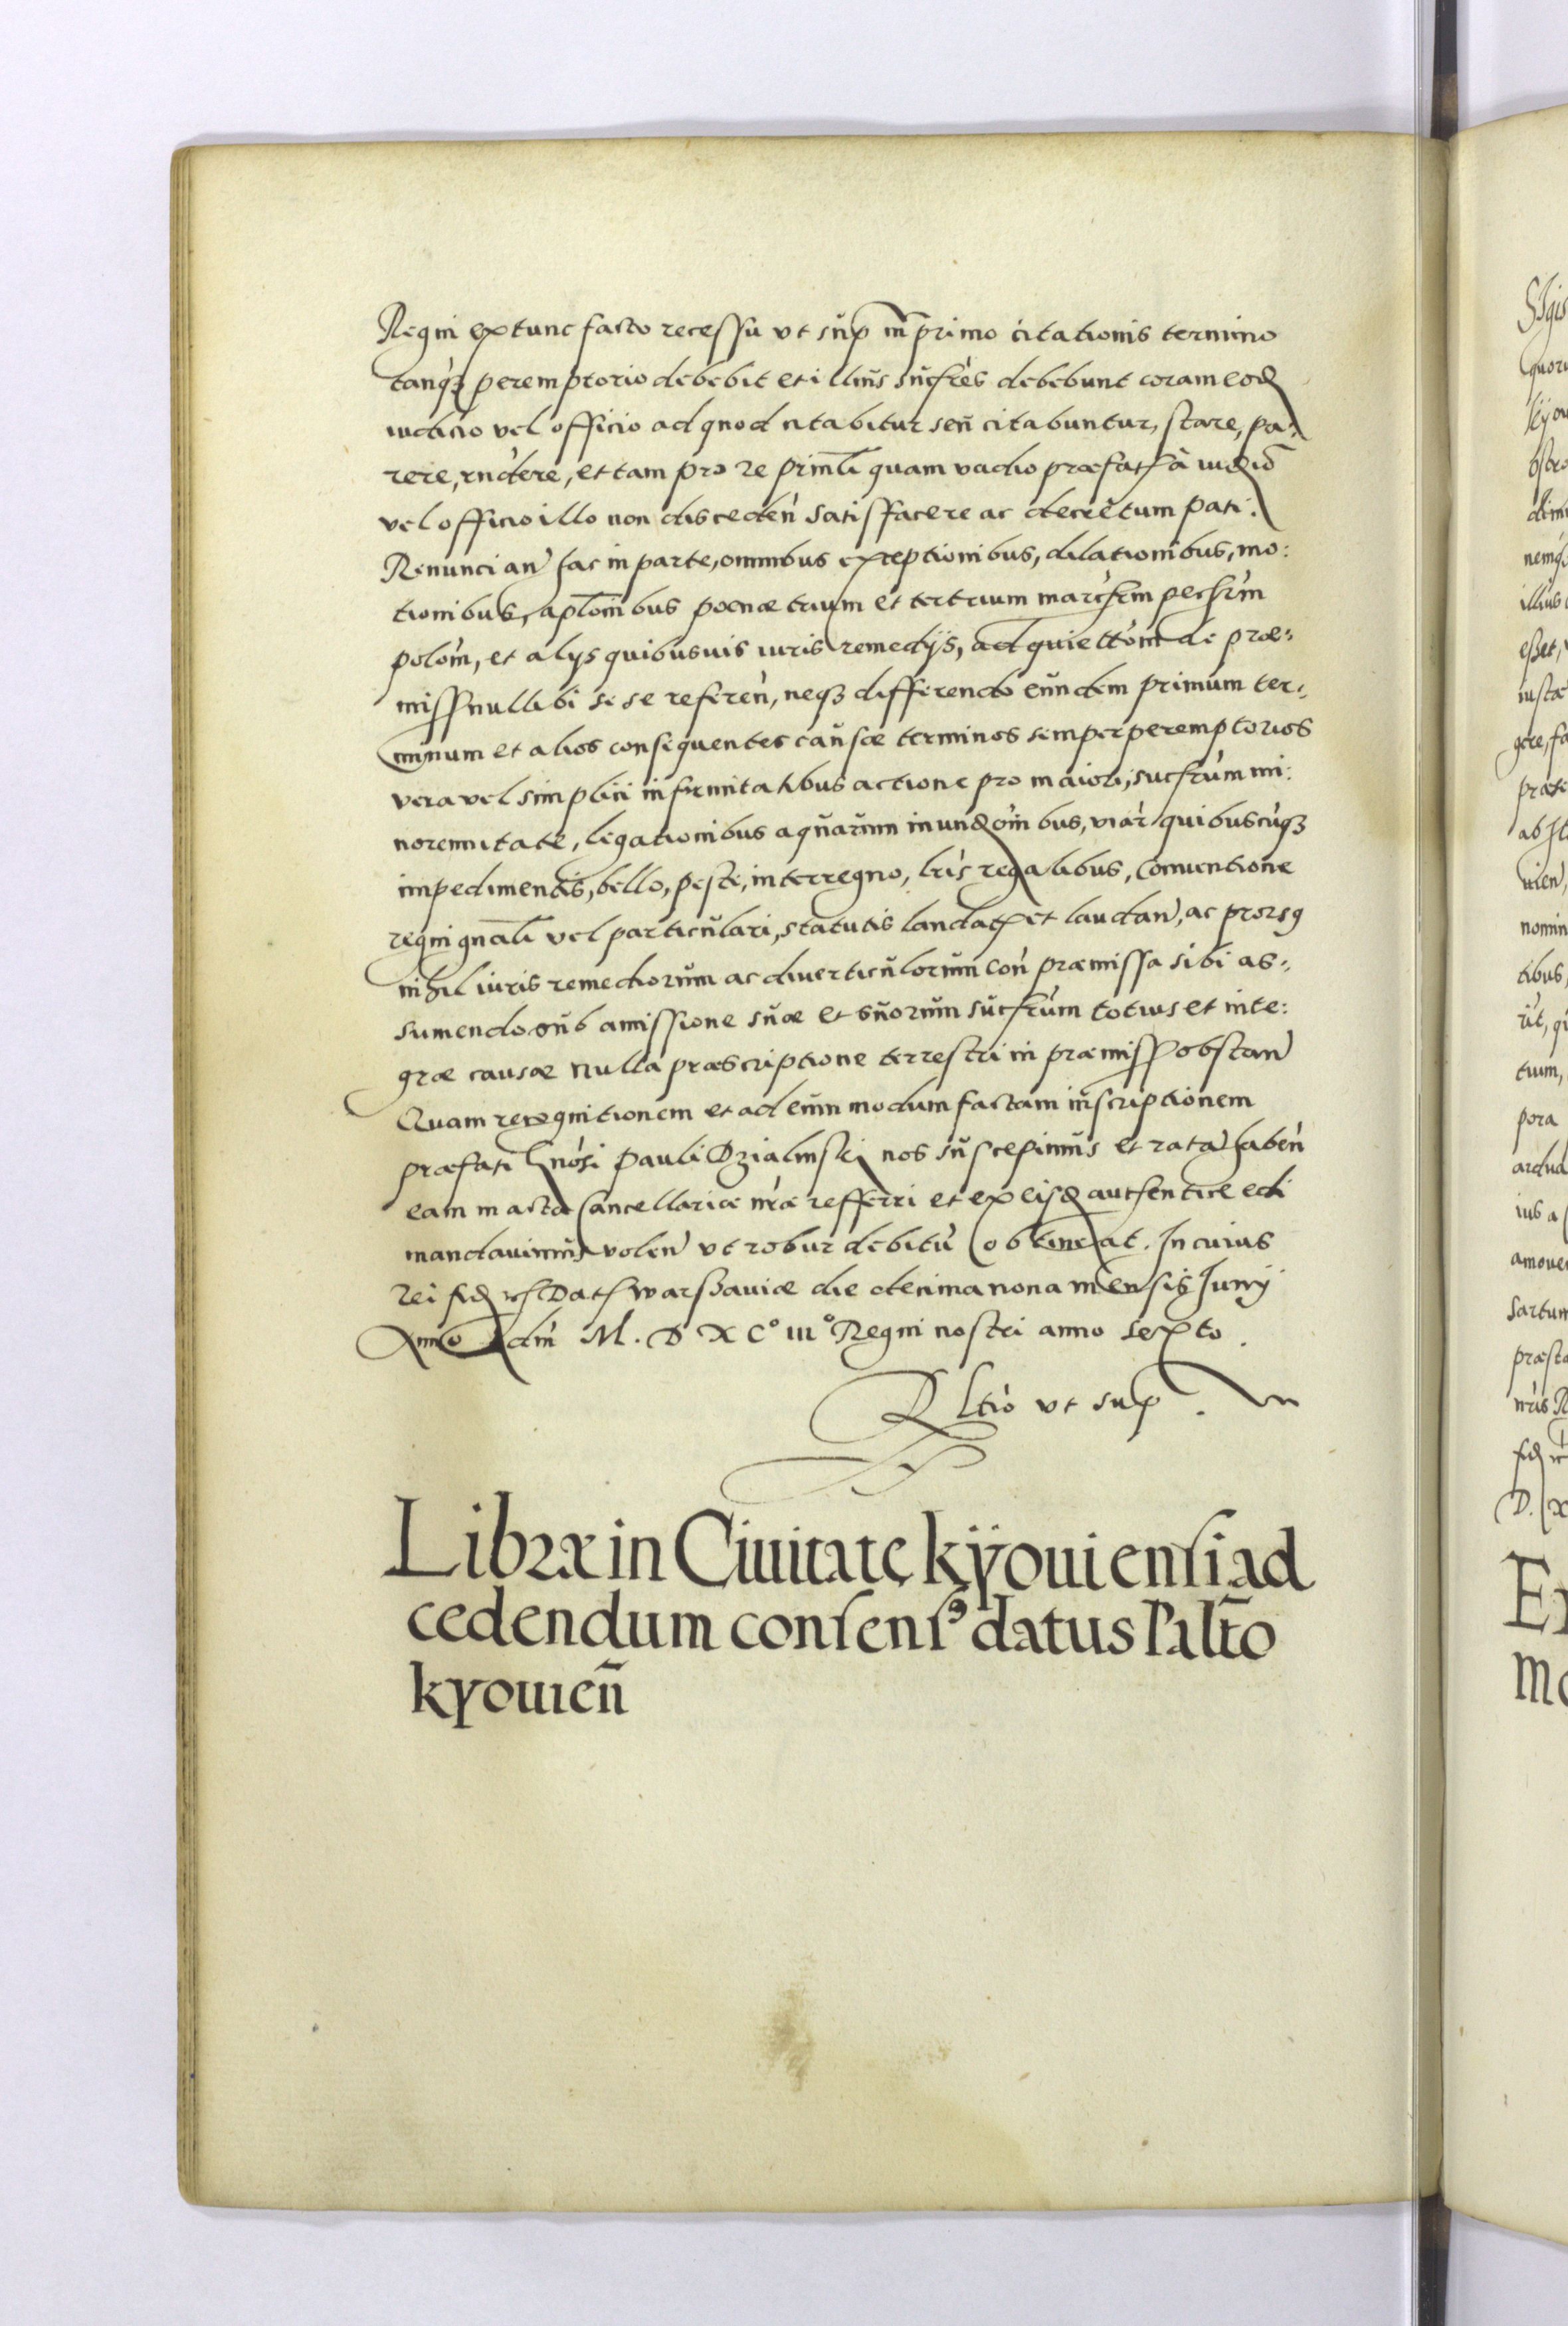 Regni extunc facto recessu vt sup in primo citationis termino
tanq3 peremptorio debebit et illius succres debebunt coram eod
iudicio vel officio ad quod citabitur seu citabuntur, stare, pa:
rere, rndere, et tam pro re prinli quam vadio præfat à iudio
vel officio illo non disceden satisfacere ac decretum pati.
Renuncian hac in parte, omnibus exceptionibus, dilationibus, mo:
tionibus, aplonibus poenæ trium et tertrium
polom, et alys quibusuis iuris remedijs, ad quiettom de præ:
miss nullibi se se referen, neq3 differendo eundem primum ter:
minum et alios consequentes causæ terminos semper peremptorios
vera vel simplici infirmitatibus actione pro maiori, succrum mi:
norennitate, legationibus aquarum inundoinbus, viar quibuscuq3
impedimentis, bello, peste, interregno, lris regalibus, Conuentione
regni gnali vel particulari, statutis laudat et laudan, ac prorsq
nihil iuris remediorum ac diuerticulorum con præmissa sibi as:
sumendo sub amissione suæ et suorum succrum totius et inte:
græ causæ nulla præscriptione terrestri in præmiss obstan
Quam recognitionem et ad eum modum factam inscriptionem
præfati Gnosi Pauli Dzialinski nos suscepimus et rata haben
eam in acta Cancellariæ nræ refferri et ex eisd authentice edi
mandauimus volen vt robur debitu obtineat. In cuius
rei fid Dat Warshauiæ die decima nona mensis Juny
Anno dni M. D XC° III° Regni nostri anno sexto.
Rltio vt sup.
Libræ in Ciuitate kÿouiensi ad
cedendum consens9 datus Palto
kyouien